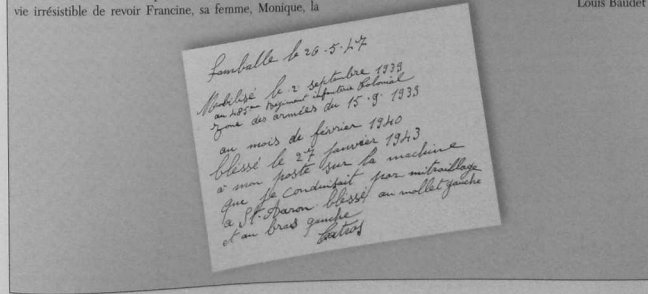 vie irrésistible de revoir Francine, sa femme, Monique, la
Louis Baudet
Lamballe le 26-5-47
Mobilisé le 2 septembre 1939
au 485ème Régiment infanterie Colonial
zone des armées du 15-9-1939
au mois de février 1940
blessé le 27 janvier 1943
à mon poste sur la machine
que je conduisait par mitraillage
à St-Aaron blessé au mollet gauche
et au bras gauche